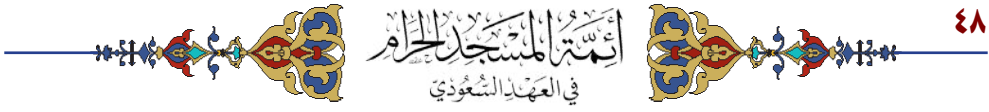 ٤٨
أئمة المسجد الحرام
في العهد السعودي